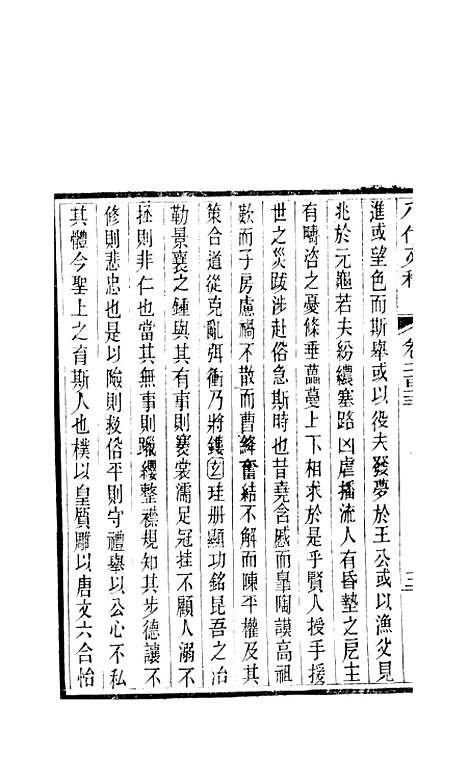 進或望色而斯舉或以役夫發夢於王公或以漁父見
兆於元龜若夫紛繷塞路凶虐播流人有昏墊之戹主
有疇咨之憂條垂藟蔓上下相求於是乎賢人授手援
世之災跋涉赴俗急斯時也昔堯含慼而皐陶謨高祖
歎而子房慮禍不散而曹絳奮結不解而陳平權及其
策合道從克亂弭衝乃將鏤玄珪册顯功銘昆吾之冶
勒景襄之鍾與其有事則褰裳濡足冠挂不顧人溺不
拯則非仁也當其無事則躐纓整襟規知其步德讓不
修則悲忠也是以險則救俗平則守禮舉以公心不私
其體今聖上之育斯人也樸以皇質雕以唐文六合怡